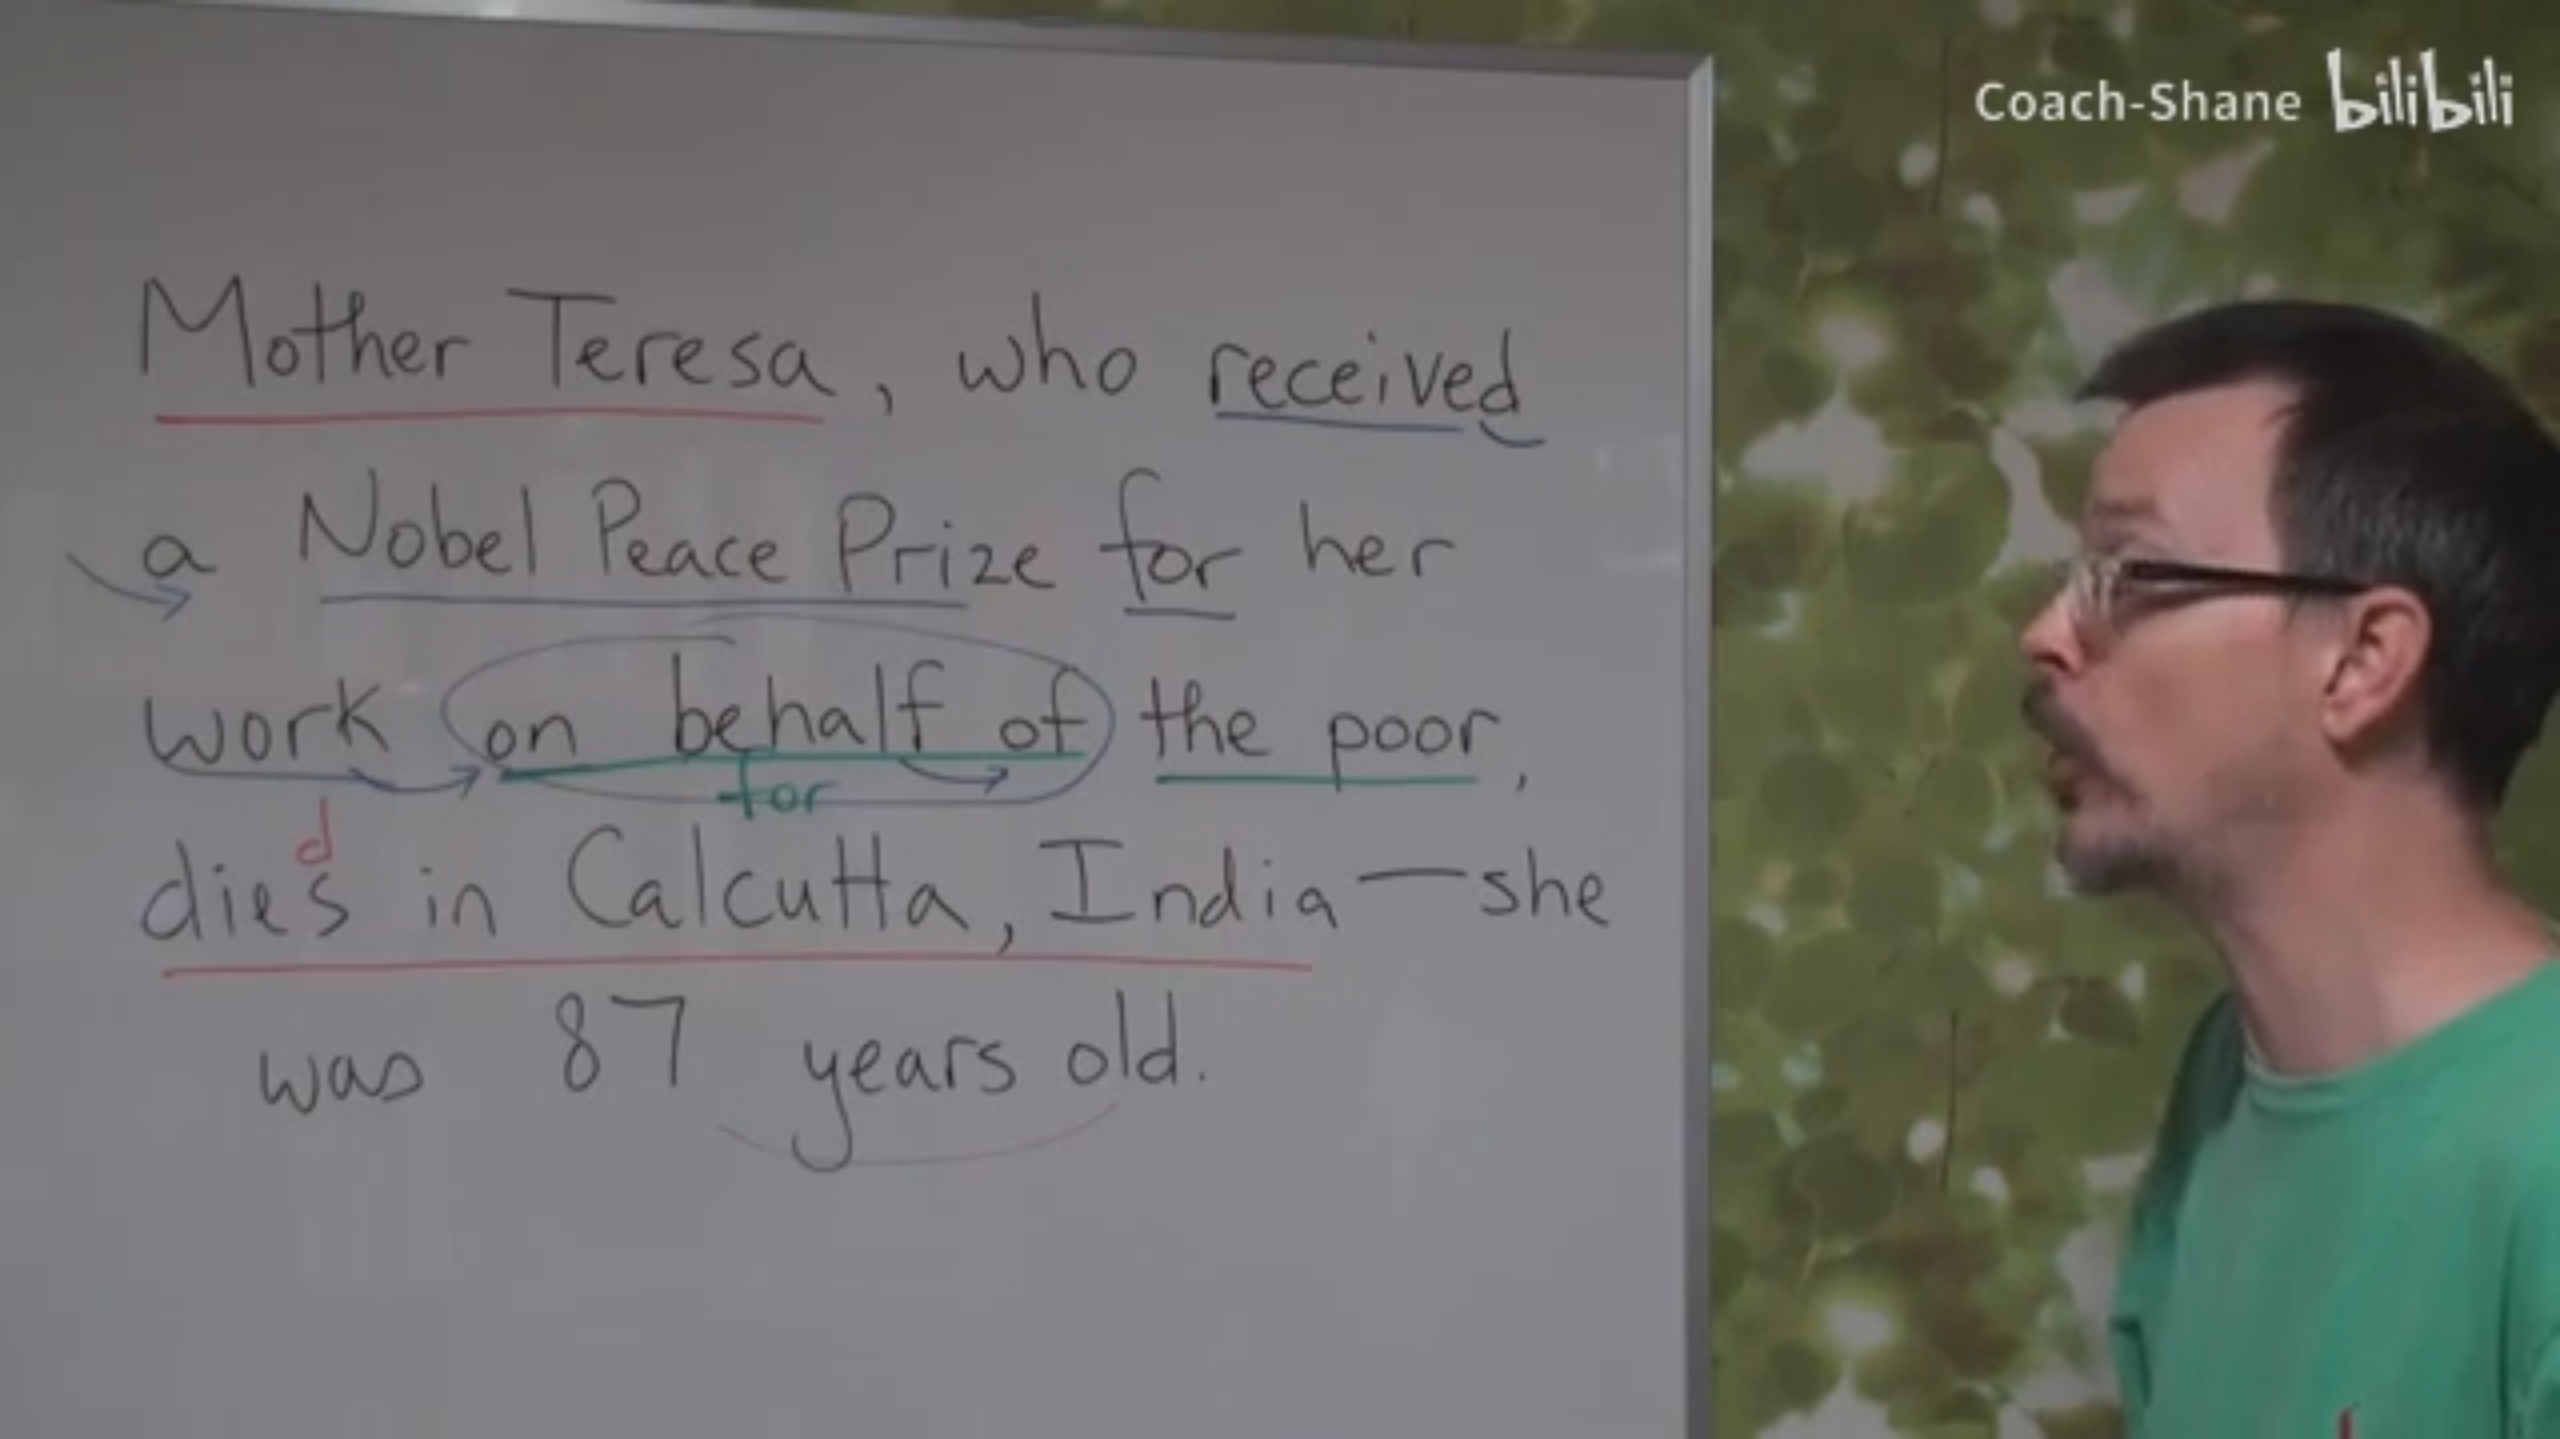 Coach-Shane bilibili
Mother Teresa, who received
a Nobel Peace Prize for her
work on behalf of the poor,
for
d
dies in Calcutta, India—she
was 87 years old.